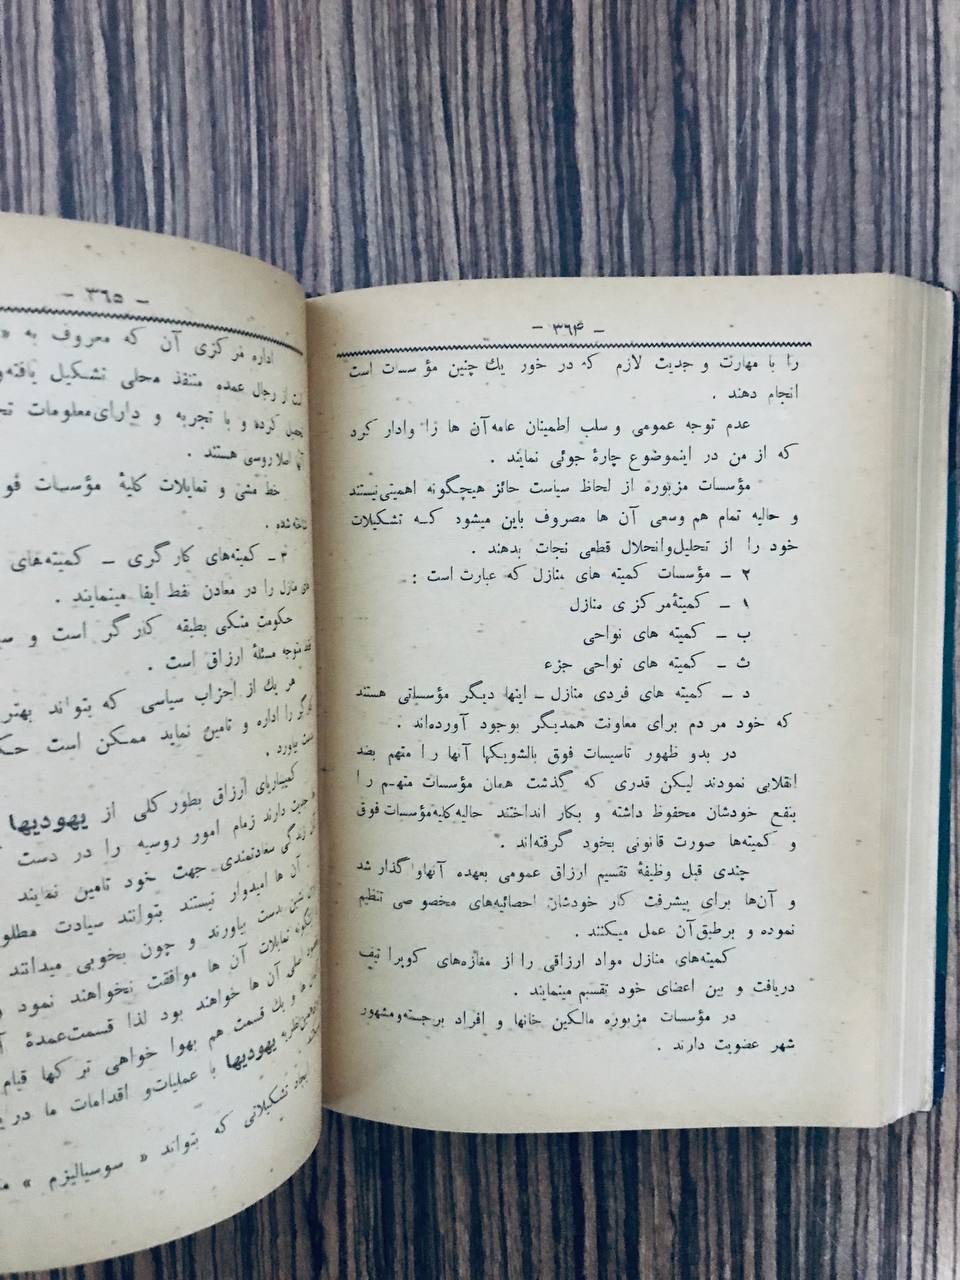 - ۳٦۴ -
را با مهارت و جدیت لازم که در خور یك چنین مؤسسات است
انجام دهند .
عدم توجه عمومی و سلب اطمینان عامه آن ها را وادار کرد
که از من در اینموضوع چارۀ جوئی نمایند .
مؤسسات مزبوره از لحاظ سیاست حائز هیچگونه اهمیتی نیستند
و حالیه تمام هم وسعی آن ها مصروف باین میشود کـه تشکیلات
خود را از تحلیل وانحلال قطعی نجات بدهند .
۲ ــ مؤسسات کمیته های منازل که عبارت است :
۱ ــ کمیتۀ مرکزی منازل
ب ــ کمیته های نواحی
ث ــ کمیته های نواحی جزء
د ــ کمیته های فردی منازل ــ اینها دیگر مؤسساتی هستند
که خود مردم برای معاونت همدیگر بوجود آورده‌اند .
در بدو ظهور تاسیسات فوق بالشویکها آنها را متهم بضد
انقلابی نمودند لیکن قدری که گذشت همان مؤسسات متهـم را
بنفع خودشان محفوظ داشته و بکار انداختند حالیه کلیه مؤسسات فوق
و کمیته‌ها صورت قانونی بخود گرفته‌اند .
چندی قبل وظیفۀ تقسیم ارزاق عمومی بعهده آنهاوا گذار شد
و آن‌ها برای پیشرفت کار خودشان احصائیه‌های مخصوصی تنظیم
نموده و برطبق آن عمل میکنند .
کمیته‌های منازل مواد ارزاقی را از مغازه‌های کوپراتیف
دریافت و بین اعضای خود تقسیم مینمایند .
در مؤسسات مزبوره مالکین خانها و افراد برجسته ومشهور
شهر عضویت دارند .
- ۳٦٥ -
اداره مرکزی آن که معروف به «
از رجال عمده متنفذ محلی تشکیل یافته
تحصیل کرده و با تجربه و دارای معلومات
آنها اصلا روسی هستند .
خط مشی و تمایلات کلیۀ مؤسسات
شناخته شده .
۳ ــ کمیته‌های کارگری ــ کمیته‌های
منازل را در معادن نفط ایفا مینمایند .
حکومت متکی بطبقه کارگر است و
متوجه مسئلۀ ارزاق است .
هر یك از احزاب سیاسی که بتواند بهتر
را اداره و تامین نماید ممکن است
بیاورد .
کمیساریای ارزاق بطور کلی از یهودیها
جدیت دارند زمام امور روسیه را در دست
زندگی سعادتمندی جهت خود تامین نمایند
آن ها امیدوار نیستند بتوانند سیادت
بدست بیاورند و چون بخوبی میدانند
تمایلات آن ها موافقت نخواهند نمود
اصلی آن ها خواهند بود لذا قسمت عمدۀ
و یك قسمت هم بهوا خواهی ترکها قیام
یهودیها با عملیات و اقدامات ما در
ایجاد تشکیلاتی که بتواند « سوسیالیزم »